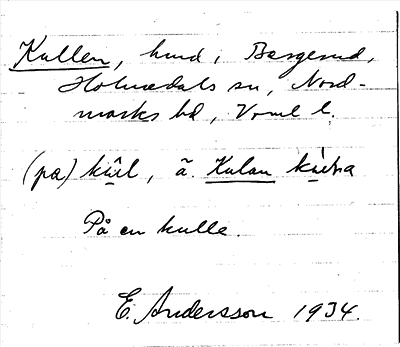 Kullen, hmd i Børgerud,
Holmedals sn, Nord-
marks hd, Vrml l.
(pa) kùl, ä. Kulan
På en kulle.
E. Andersson 1934.